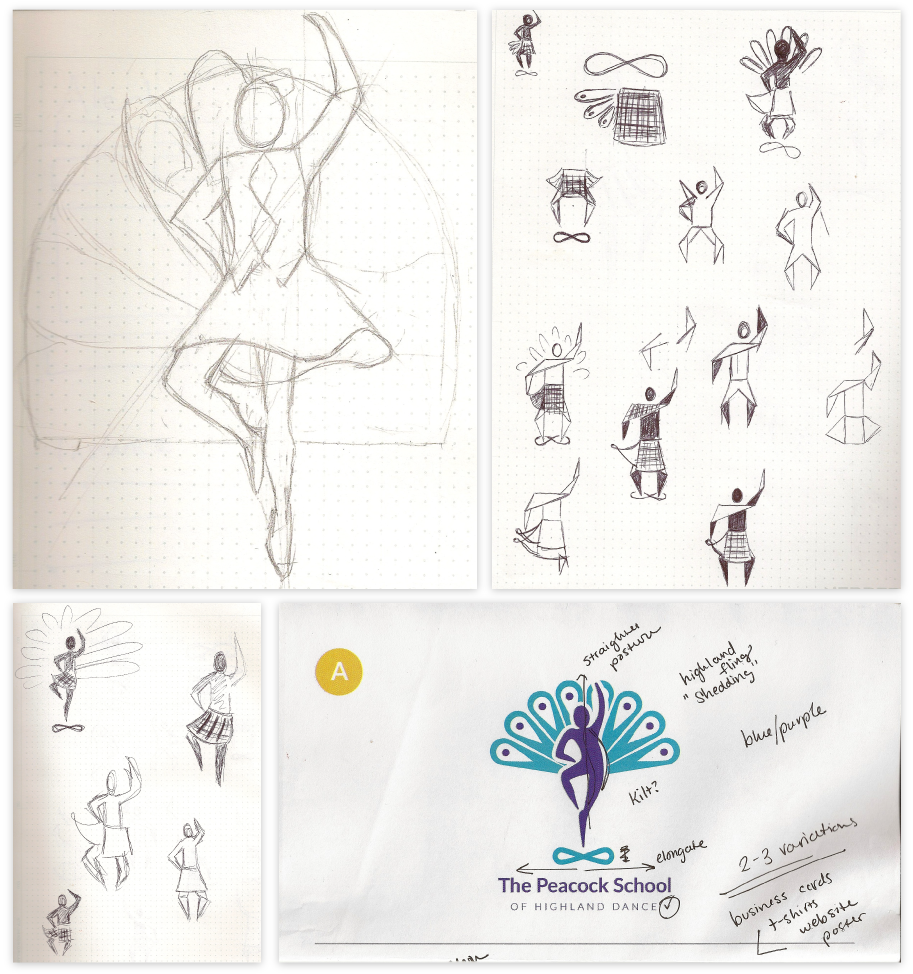 A
straighter
posture
highland
fling?
"shedding"
blue/purple
Kilt?
elongate
The Peacock School
OF HIGHLAND DANCE
2-3 variations
business cards
t-shirts
website
poster